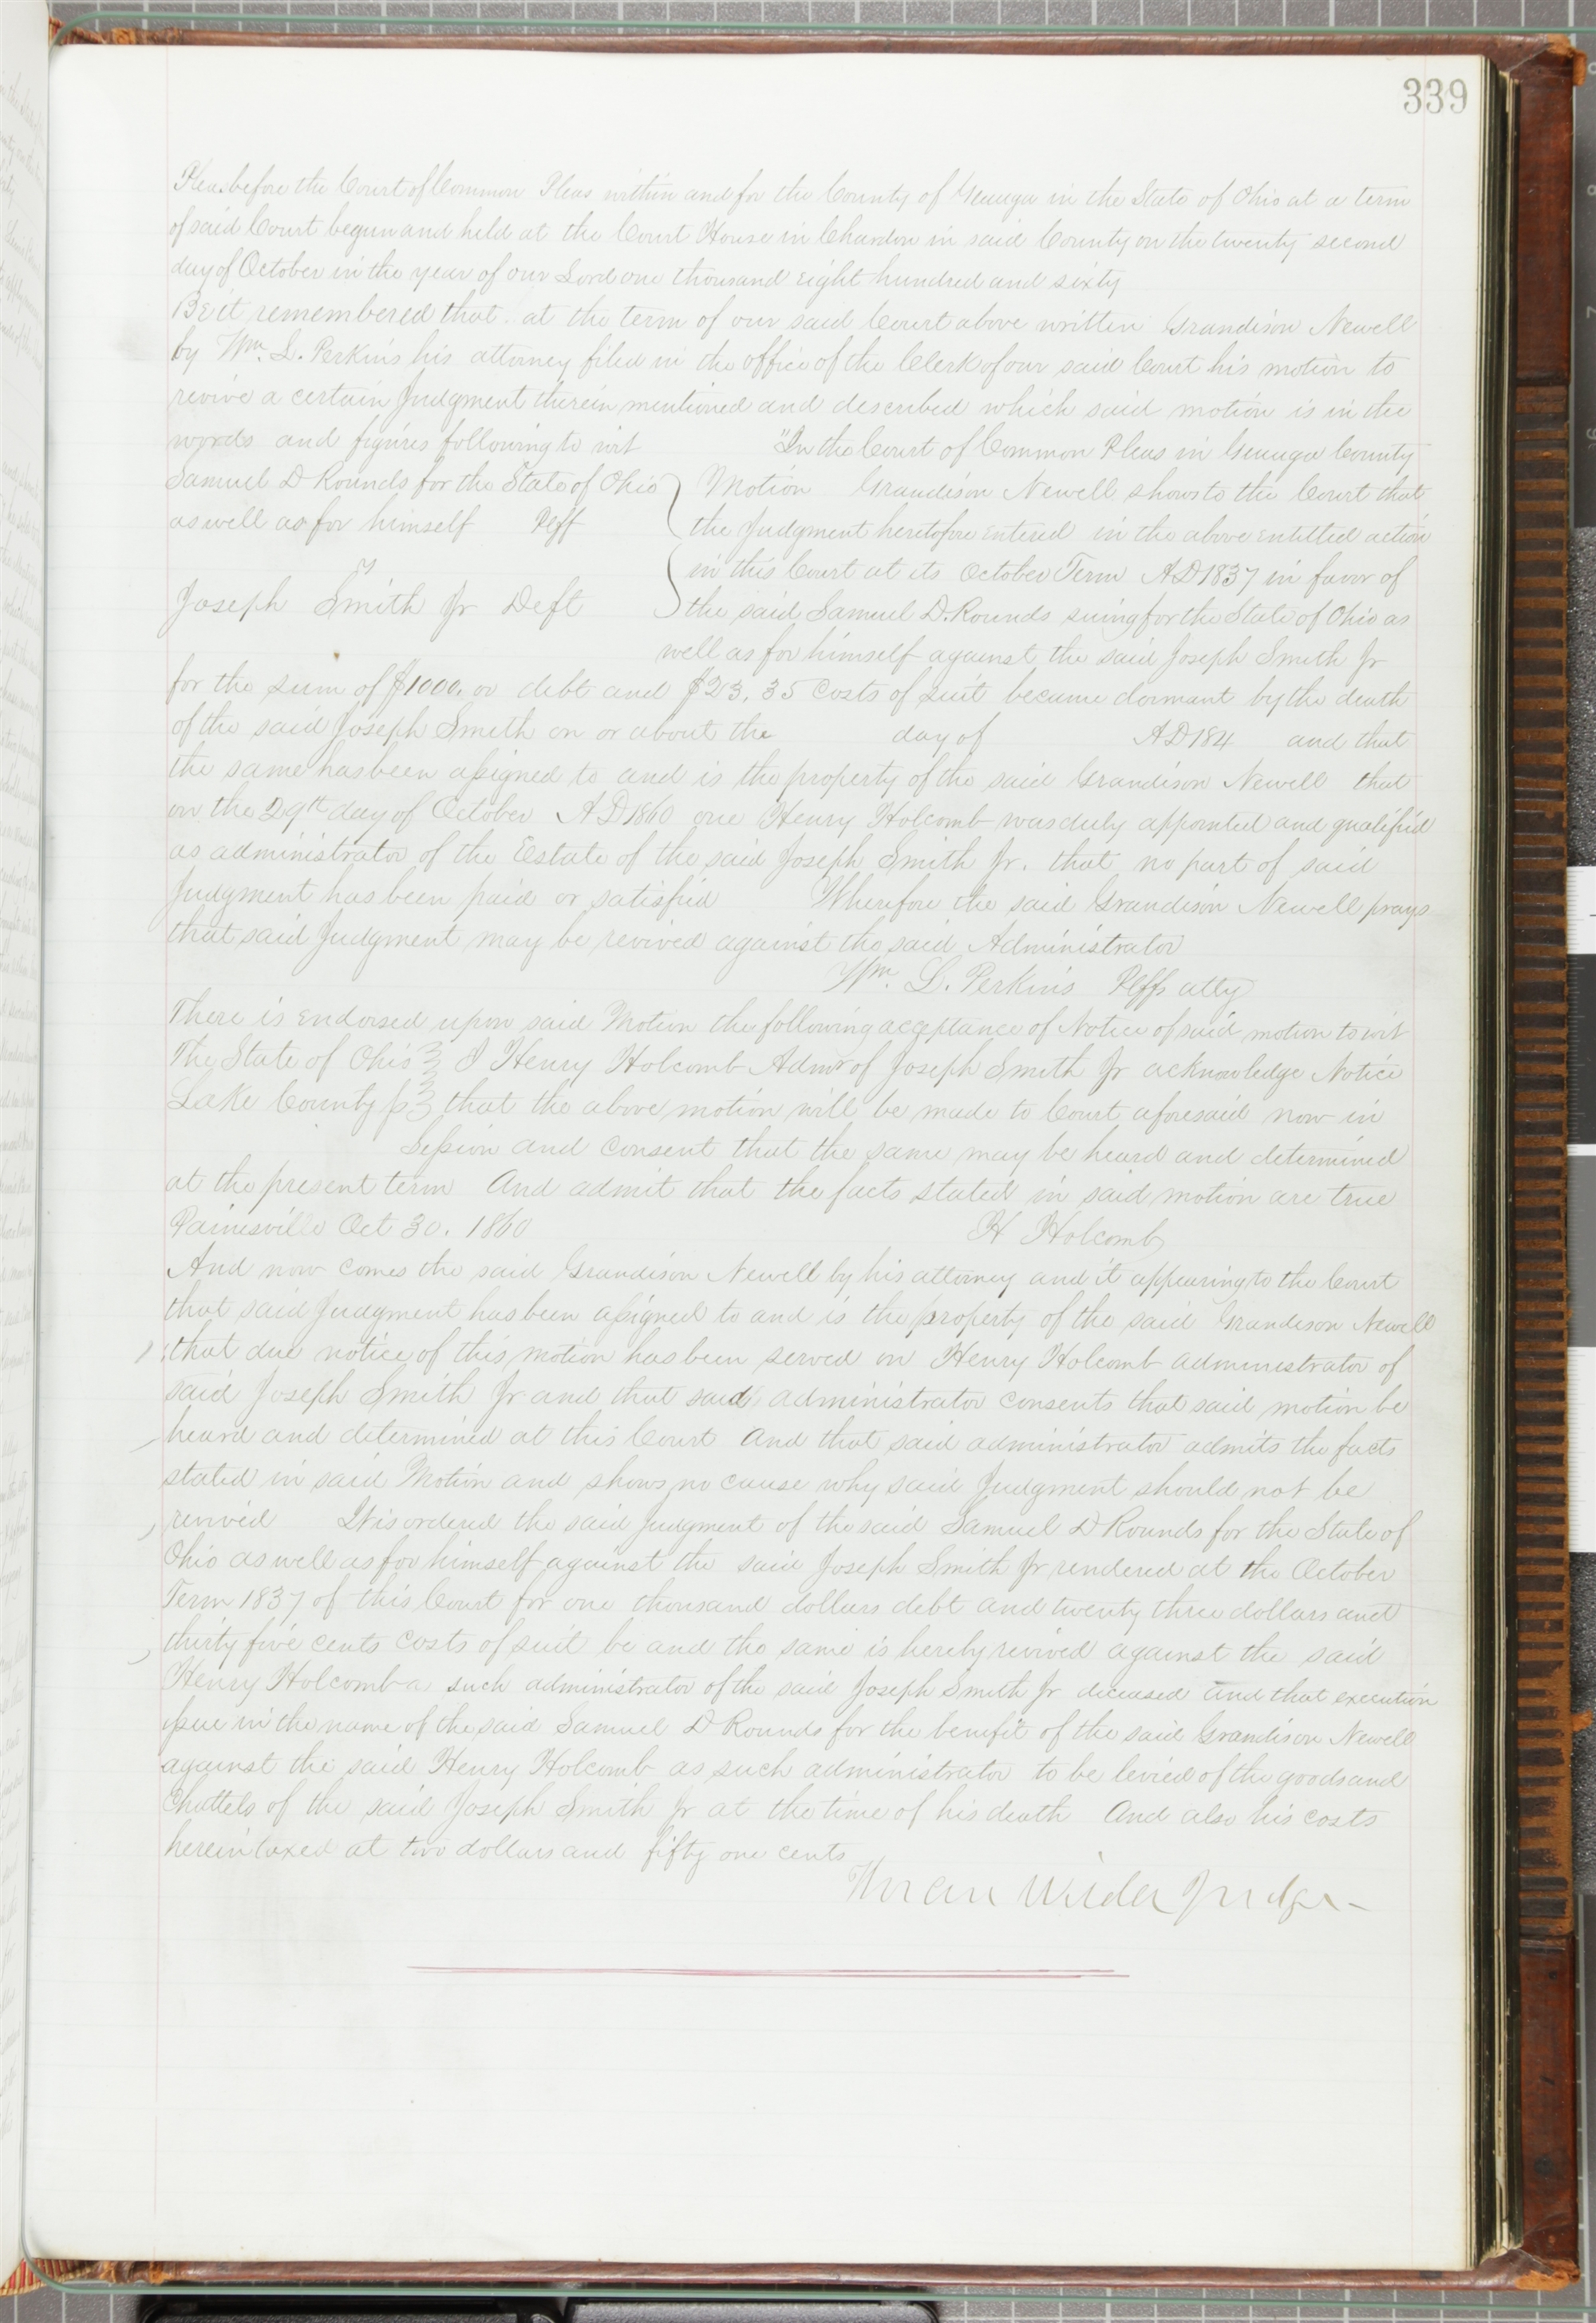 339
Pleas before the Court of Common Pleas within and for the County of Geauga in the State of Ohio at a term
of said Court begun and held at the Court House in Chardon in said County on the twenty second
day of October in the year of our Lord one thousand eight hundred and sixty
Be it remembered that at the term of our said Court above written Grandison Newell
by Wm. L. Perkins his attorney filed in the office of the Clerk of our said Court his motion to
revive a certain Judgment therein mentioned and described which said motion is in the
words and figures following to wit "In the Court of Common Pleas in Geauga County
Samuel D Rounds for the State of Ohio } Motion Grandison Newell shows to the Court that
as well as for himself Plff the Judgment heretofore entered in the above entitled action
vs in this Court at its October Term AD 1837 in favor of
Joseph Smith Jr Deft the said Samuel D. Rounds suing for the State of Ohio as
well as for himself against the said Joseph Smith Jr
for the sum of $1000. or debt and $23.35 costs of suit became dormant by the death
of the said Joseph Smith on or about the day of AD 184 and that
the same has been assigned to and is the property of the said Grandison Newell that
on the 29th day of October AD 1860 one Henry Holcomb was duly appointed and qualified
as administrator of the Estate of the said Joseph Smith Jr. that no part of said
Judgment has been paid or satisfied Wherefore the said Grandison Newell prays
that said Judgment may be revived against the said Administrator
Wm. L. Perkins Plffs atty
There is endorsed upon said Motion the following acceptance of Notice of said motion to wit
The State of Ohio } I Henry Holcomb Admr of Joseph Smith Jr acknowledge Notice
Lake County ss } that the above motion will be made to Court aforesaid now in
Session and consent that the same may be heard and determined
at the present term And admit that the facts stated in said motion are true
Painesville Oct 30. 1860 H Holcomb
And now comes the said Grandison Newell by his attorney and it appearing to the Court
that said Judgment has been assigned to and is the property of the said Grandison Newell
that due notice of this motion has been served on Henry Holcomb administrator of
said Joseph Smith Jr and that said administrator consents that said motion be
heard and determined at this Court And that said administrator admits the facts
stated in said Motion and shows no cause why said Judgment should not be
revived It is ordered the said Judgment of the said Samuel D Rounds for the State of
Ohio as well as for himself against the said Joseph Smith Jr rendered at the October
Term 1837 of this Court for one thousand dollars debt and twenty three dollars and
thirty five cents costs of suit be and the same is hereby revived against the said
Henry Holcomb a such administrator of the said Joseph Smith Jr deceased and that execution
issue in the name of the said Samuel D Rounds for the benefit of the said Grandison Newell
against the said Henry Holcomb as such administrator to be levied of the goods and
Chattels of the said Joseph Smith Jr at the time of his death And also his costs
herein taxed at two dollars and fifty one cents
Wilder Judge